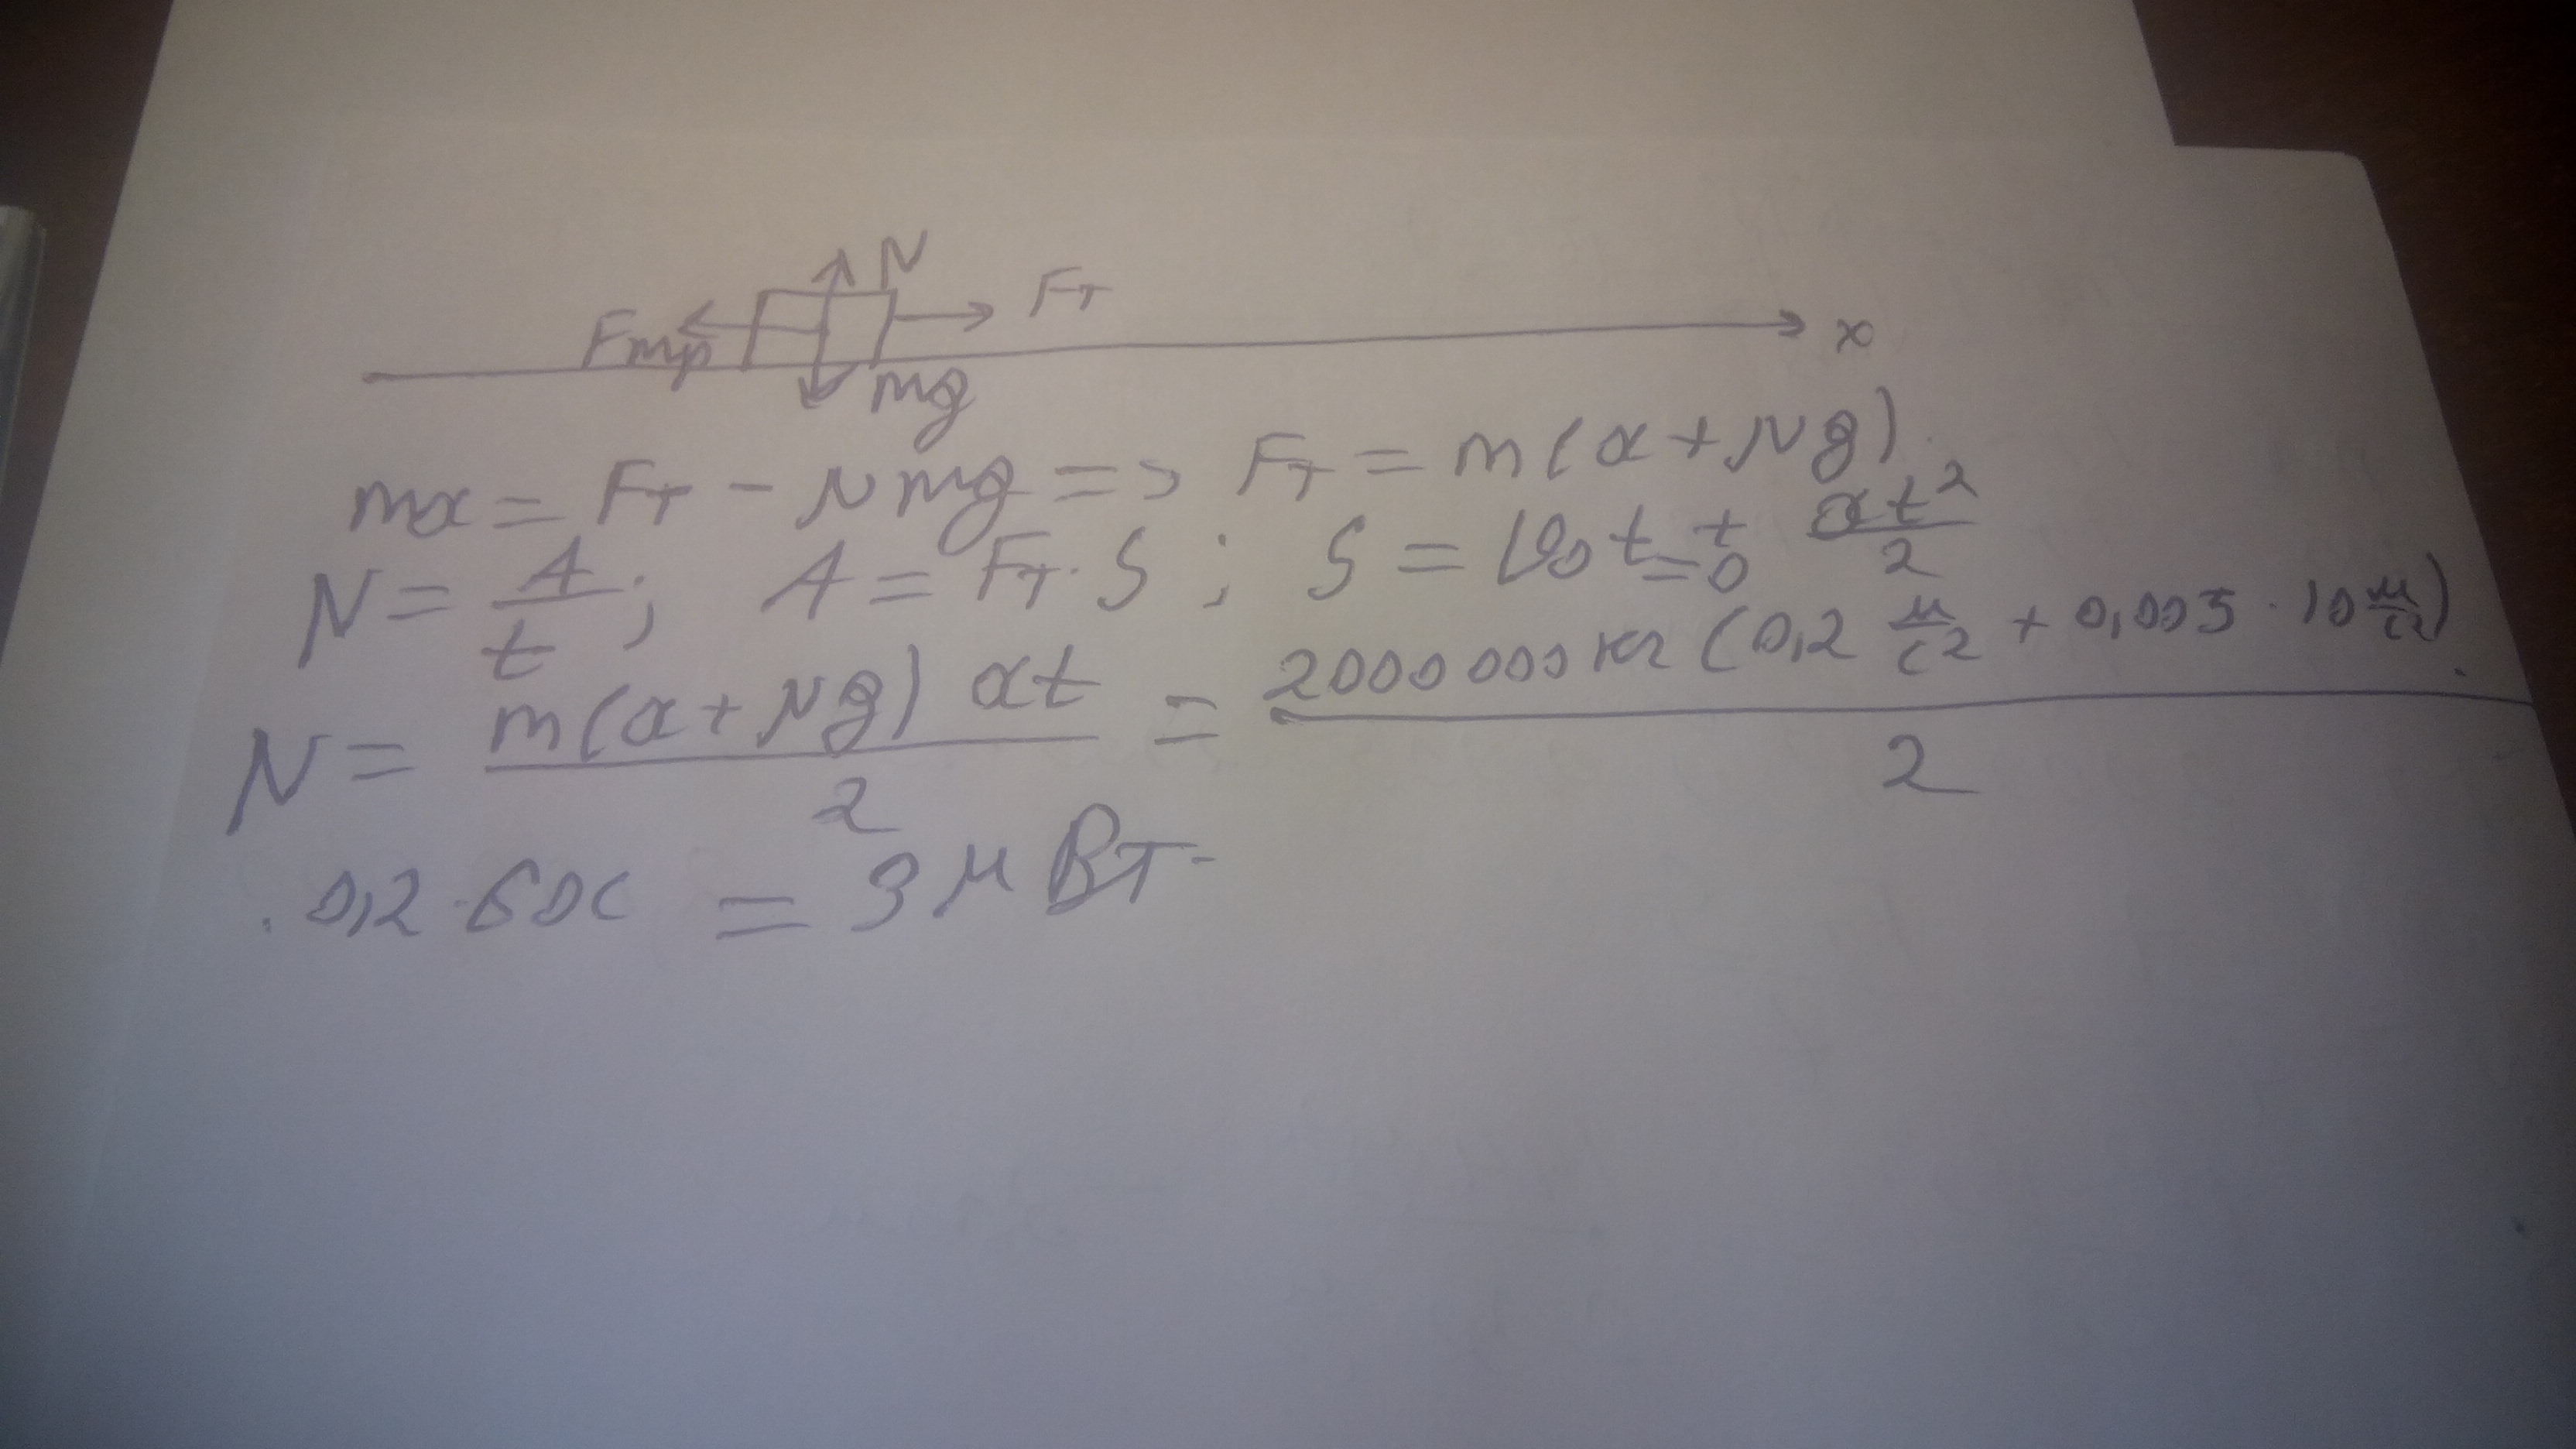 N
Fт
Fтр
x
mg
ma = Fт - μmg => Fт = m(a + μg).
N = A/t; A = Fт · S; S = V₀t + at²/2
=0
N = m(a + μg) at / 2 = 2000000 кг (0,2 м/с² + 0,005 · 10 м/с²) · / 2
· 0,2 · 60 с = 3 МВт